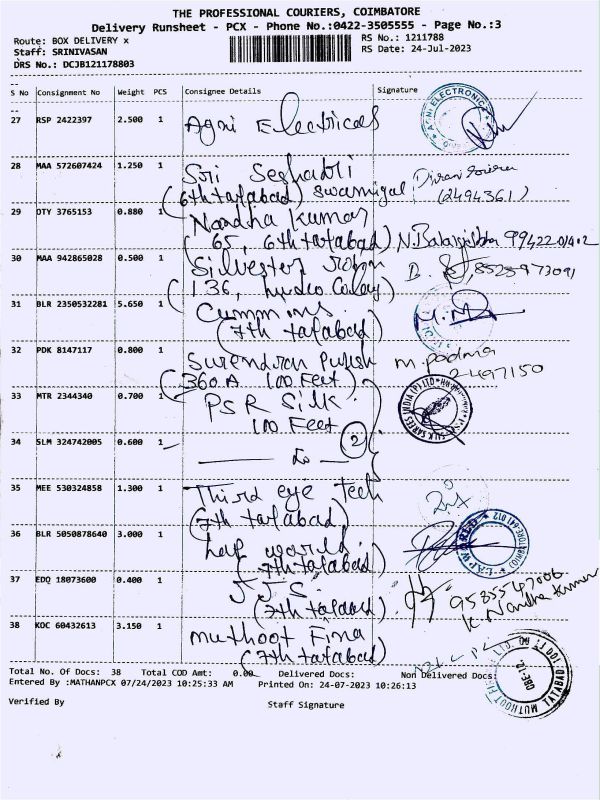 THE PROFESSIONAL COURIERS, COIMBATORE
Delivery Runsheet - PCX - Phone No.:0422-3505555 - Page No.:3
Route: BOX DELIVERY x
RS No.: 1211788
Staff: SRINIVASAN
RS Date: 24-Jul-2023
DRS No.: DCJB121178803
S No Consignment No Weight PCS Consignee Details Signature
27 RSP 2422397 2.500 1 Agni Electricals
28 MAA 572607424 1.250 1 Sri Seshadri
(6th tatabad) swamigal
(2494361)
29 DTY 3765153 0.880 1 Nandha Kumar
(65, 6th tatabad)
30 MAA 942865028 0.500 1 Silvester
(136,
8525973091
31 BLR 2350532281 5.650 1 Cummins
(7th tatabad)
32 PDK 8147117 0.800 1 Surendran
m. padma
2497150
(360A 100 Feet)
33 MTR 2344340 0.700 1 PSR Silk
100 Feet
34 SLM 324742005 0.600 1 do 2
35 MEE 530324858 1.300 1 Third eye Tech
(7th tatabad)
36 BLR 5050878640 3.000 1 Lap world
(7th tatabad)
37 EDQ 18073600 0.400 1 JJS
(7th tatabad)
9585547006
K. Nandha Kumar
38 KOC 60432613 3.150 1 Muthoot Fina
(7th tatabad)
Total No. Of Docs: 38 Total COD Amt: 0.00 Delivered Docs: Non Delivered Docs:
Entered By :MATHANPCX 07/24/2023 10:25:33 AM Printed On: 24-07-2023 10:26:13
Verified By Staff Signature